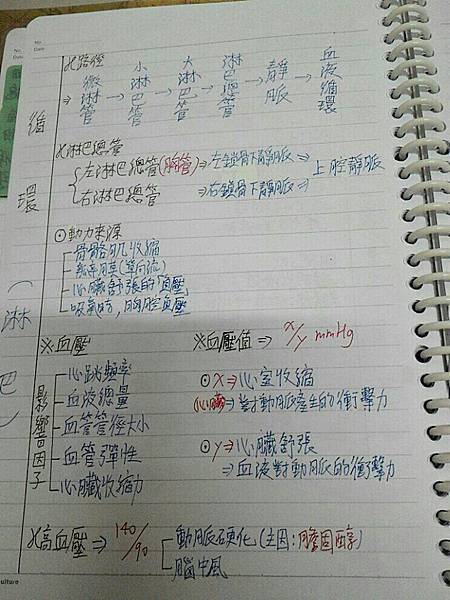 No.
Date
No.
Date
循環(淋巴
※路徑
⇒微淋管→小淋巴管→大淋巴管→淋巴總管→靜脈→血液循環
※淋巴總管
左淋巴總管(胸管)⇒左鎖骨下靜脈⇒
右淋巴總管⇒右鎖骨下靜脈⇒
上腔靜脈
⊙動力來源
骨骼肌收縮
瓣膜(單向流)
心臟舒張的「負壓」
吸氣時,胸腔負壓
※血壓
影響因子
心跳頻率
血液總量
血管管徑大小
血管彈性
心臟收縮力
※血壓值⇒x/y mmHg
⊙x⇒心室收縮
(心臟)⇒對動脈產生的衝擊力
⊙y⇒心臟舒張
⇒血液對動脈的衝擊力
※高血壓⇒140/90
動脈硬化(主因:膽固醇)
腦中風